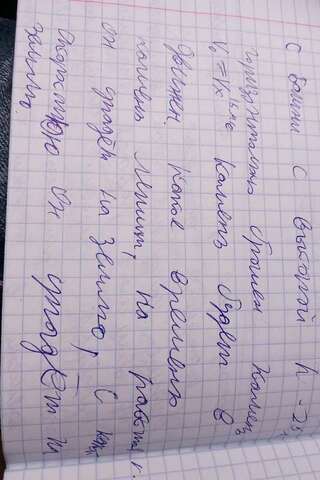 С башни с высотой h - 25
горизонтально брошен камень
V₀ = Vx Камень будет в
движен. Какое время
камень летит, на
он упадёт на Землю, С
скоростью он упадёт и
землю.